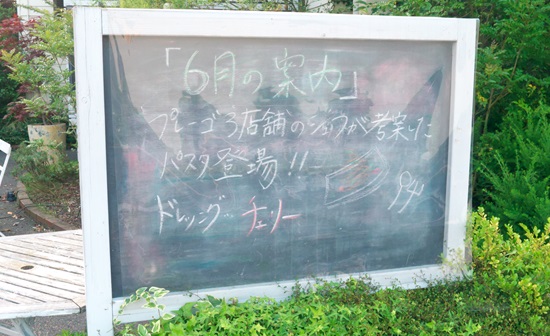 「6月の案内」
プレーゴ3店舗のシェフが考案した
パスタ登場!!
ドレッシング…チェリー